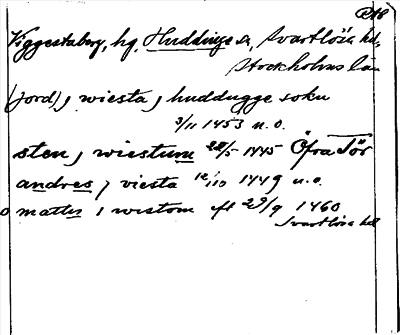 RAP
Viggestaberg, hg, Huddinge sn, Svartlösa hd,
Stockholms län
(jord) i wiesta i huddugge sokn
3/11 1453 u. o.
sten i wiestum 28/5 1445 Öfra Tör
andres i viesta 12/10 1449 u. o.
o mattis i wistom ft 29/9 1460
Svartlösa hd